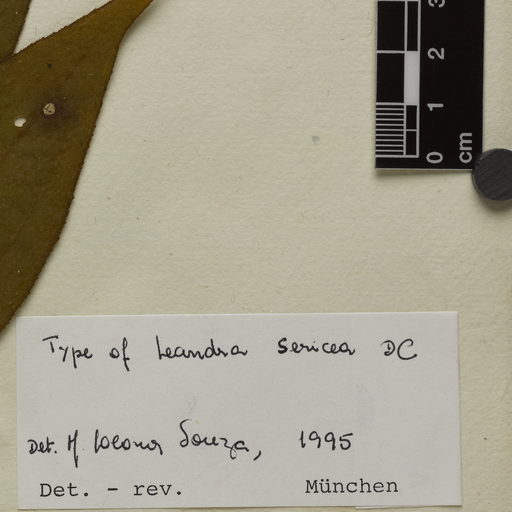 3
2
1
0
cm
Type of Leandra sericea DC
Det. M. Souza, 1995
Det. - rev. München